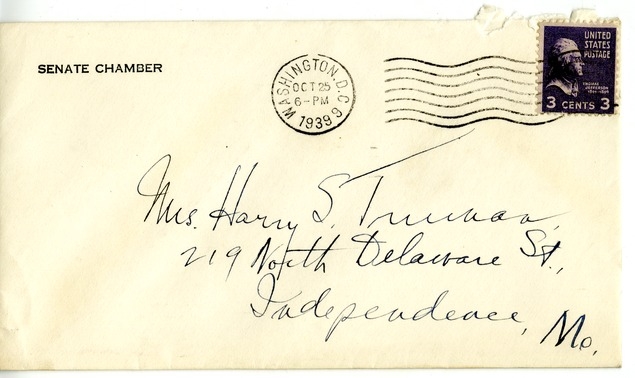 SENATE CHAMBER
WASHINGTON, D.C. 9
OCT 25
6-PM
1939
UNITED
STATES
POSTAGE
THOMAS
JEFFERSON
3 CENTS 3
Mrs. Harry S. Truman,
219 North Delaware St.,
Independence, Mo.